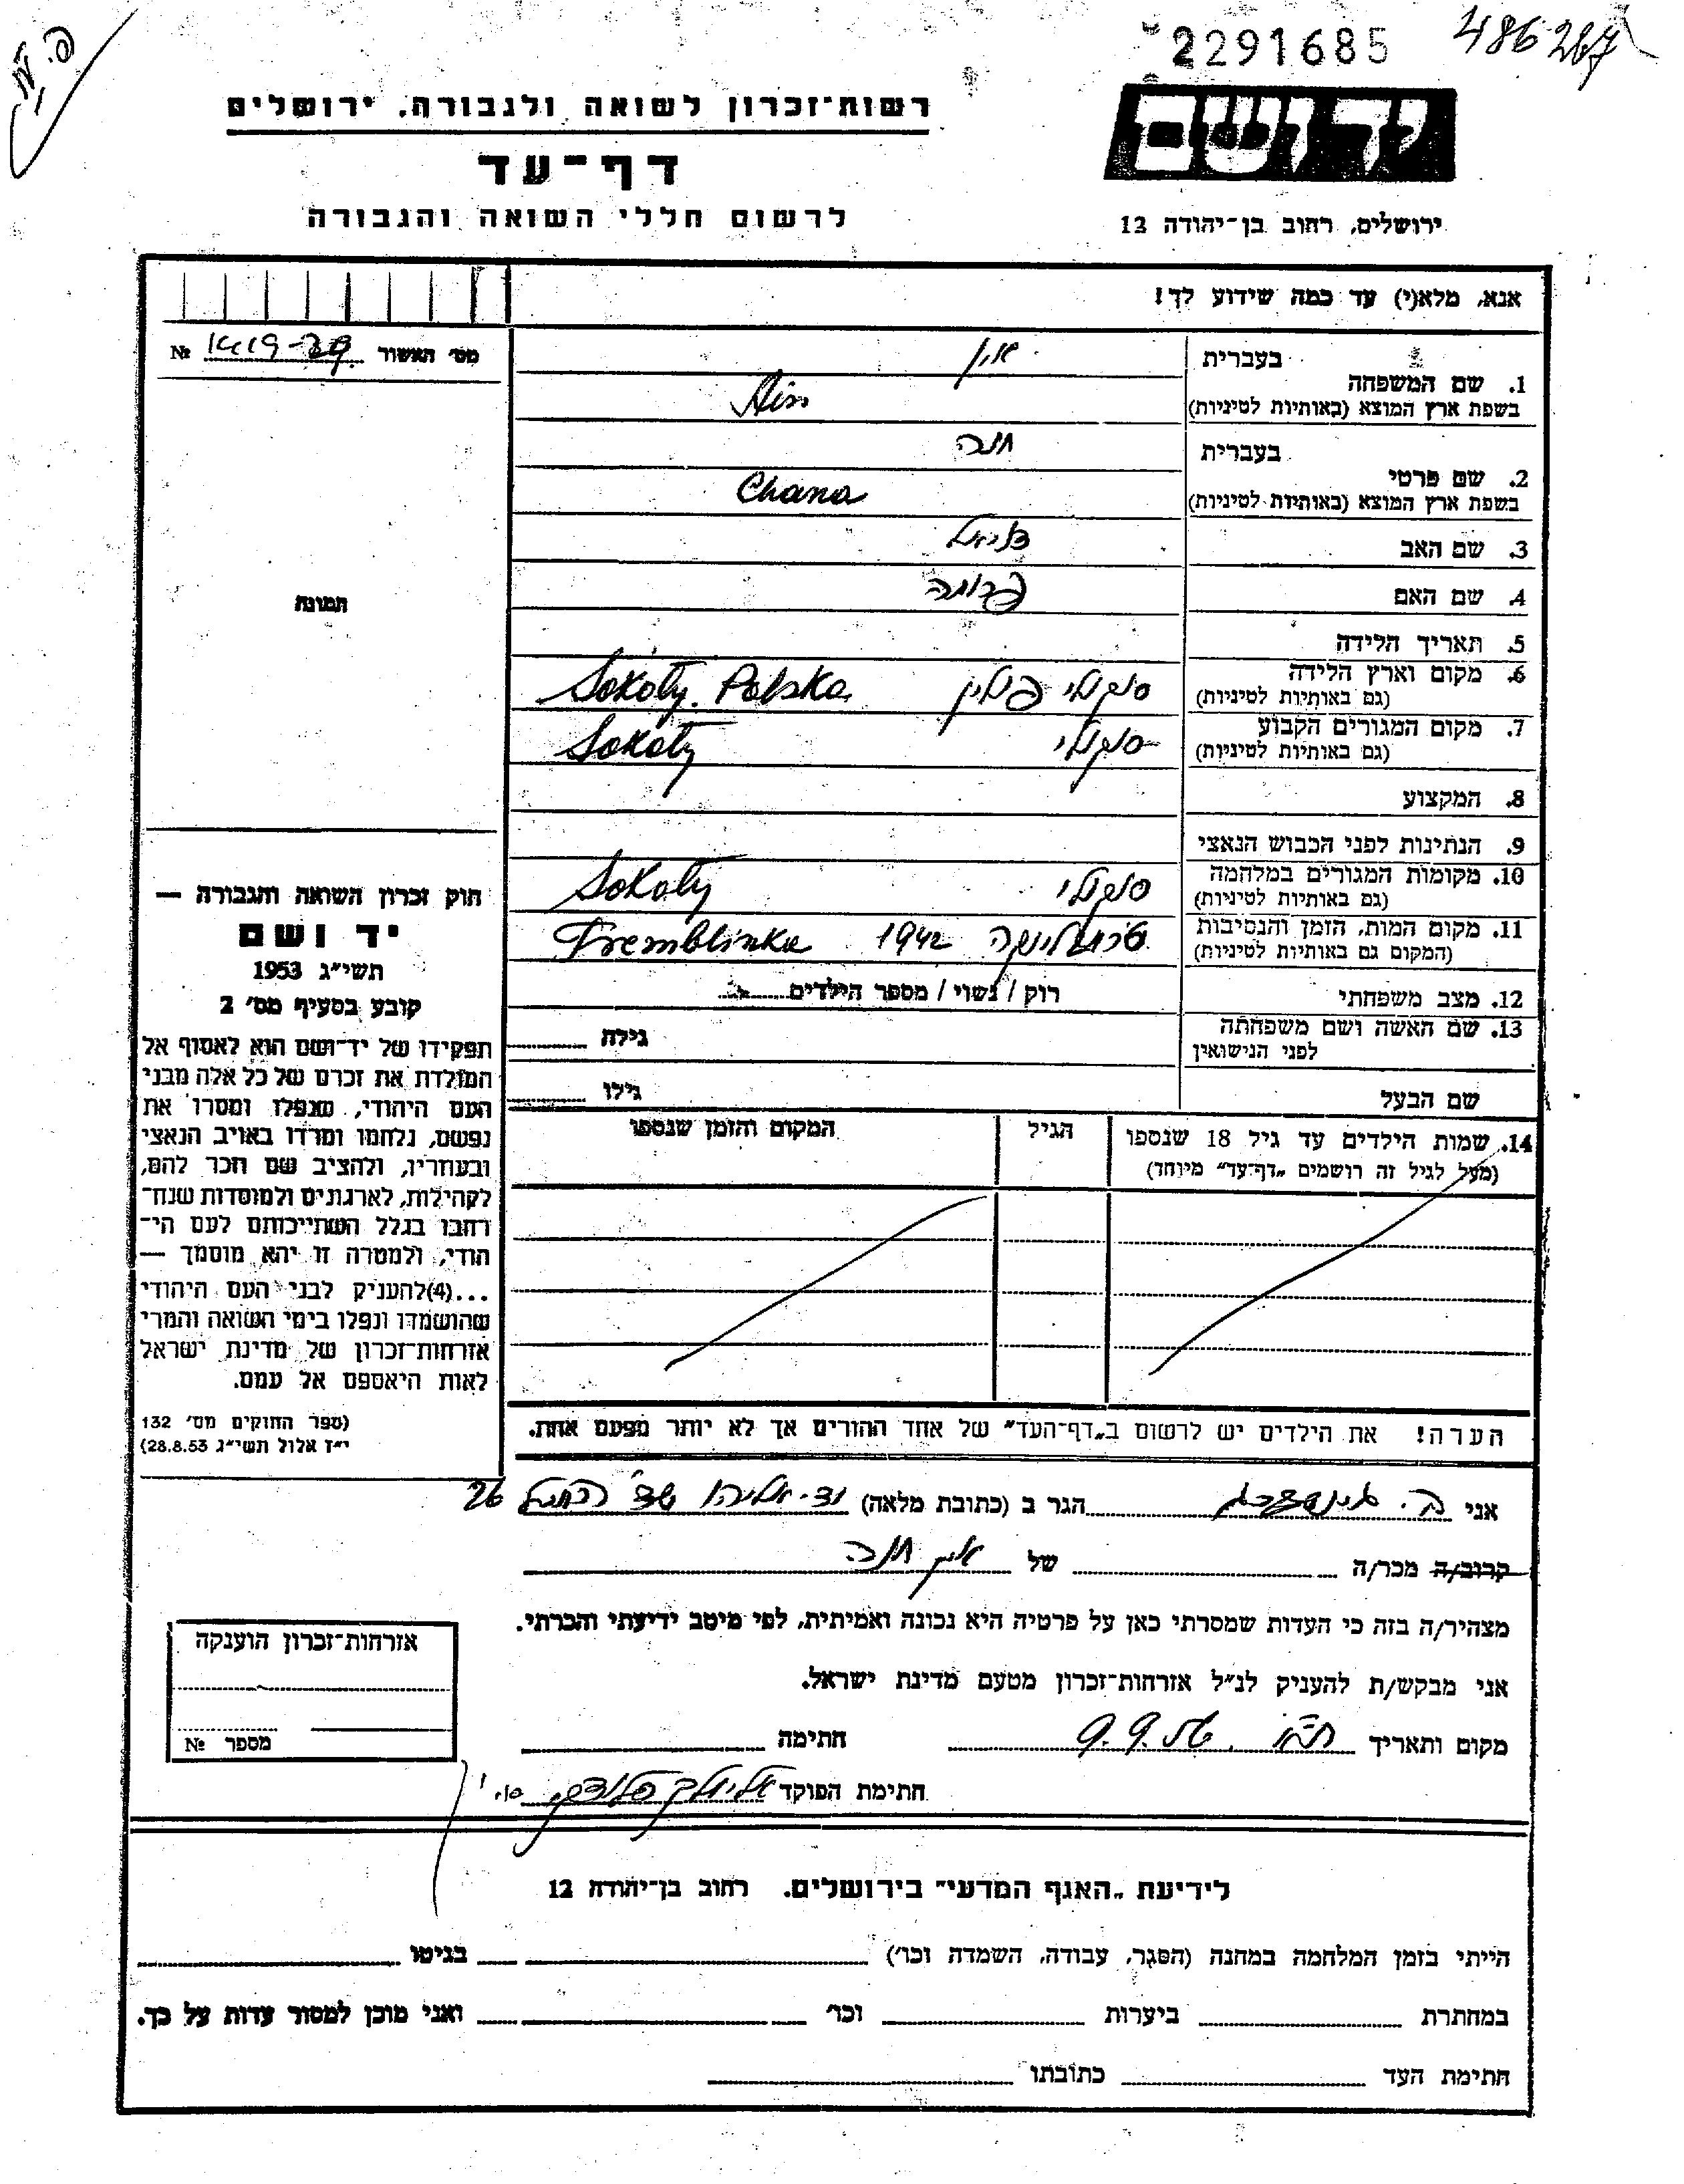 2291685
486267
רשות־זכרון לשואה ולגבורה. ירושלים
יד ושם
דף־עד
לרשום חללי השואה והגבורה
ירושלים, רחוב בן־יהודה 12
אנא, מלא(י) עד כמה שידוע לך!
מס׳ האשור № 1419-
1. שם המשפחה
בעברית אין
בשפת ארץ המוצא (באותיות לטיניות) Ain
2. שם פרטי
בעברית חנה
בשפת ארץ המוצא (באותיות לטיניות) Chana
3. שם האב דניאל
4. שם האם פרומה
5. תאריך הלידה
6. מקום וארץ הלידה סוקולי פולין Sokoły. Polska
(גם באותיות לטיניות)
7. מקום המגורים הקבוע סוקולי Sokoły
(גם באותיות לטיניות)
8. המקצוע
9. הנתינות לפני הכבוש הנאצי
10. מקומות המגורים במלחמה סוקולי Sokoły
(גם באותיות לטיניות)
11. מקום המות, הזמן והנסיבות טרמבלינקה 1942 Tremblinka
(המקום גם באותיות לטיניות)
12. מצב משפחתי רוק / נשוי / מספר הילדים
13. שם האשה ושם משפחתה גילה
לפני הנישואין
שם הבעל גילו
14. שמות הילדים עד גיל 18 שנספו הגיל המקום והזמן שנספו
(מעל לגיל זה רושמים „דף־עד״ מיוחד)
הערה! את הילדים יש לרשום ב„דף־העד״ של אחד ההורים אך לא יותר מפעם אחת.
תמונה
חוק זכרון השואה והגבורה —
יד ושם
תשי״ג 1953
קובע בסעיף מס׳ 2
תפקידו של יד־ושם הוא לאסוף אל
המולדת את זכרם של כל אלה מבני
העם היהודי, שנפלו ומסרו את
נפשם, נלחמו ומרדו באויב הנאצי
ובעוזריו, ולהציב שם וזכר להם,
לקהילות, לארגונים ולמוסדות שנח־
רבו בגלל השתייכותם לעם הי־
הודי, ולמטרה זו יהא מוסמך —
...(4)להעניק לבני העם היהודי
שהושמדו ונפלו בימי השואה והמרי
אזרחות־זכרון של מדינת ישראל
לאות היאספם אל עמם.
(ספר החוקים מס׳ 132
י״ז אלול תשי״ג 28.8.53)
אני הגר ב (כתובת מלאה) 26
קרוב/ה מכר/ה של אין חנה
מצהיר/ה בזה כי העדות שמסרתי כאן על פרטיה היא נכונה ואמיתית, לפי מיטב ידיעתי והכרתי.
אני מבקש/ת להעניק לנ״ל אזרחות־זכרון מטעם מדינת ישראל.
מקום ותאריך 9.9.56 חתימה
חתימת הפוקד
אזרחות־זכרון הוענקה
מספר №
לידיעת „האגף המדעי״ בירושלים. רחוב בן־יהודה 12
הייתי בזמן המלחמה במחנה (הסגר, עבודה, השמדה וכו׳) בגיטו
במחתרת ביערות וכו׳ ואני מוכן למסור עדות על כך.
חתימת העד כתובתו